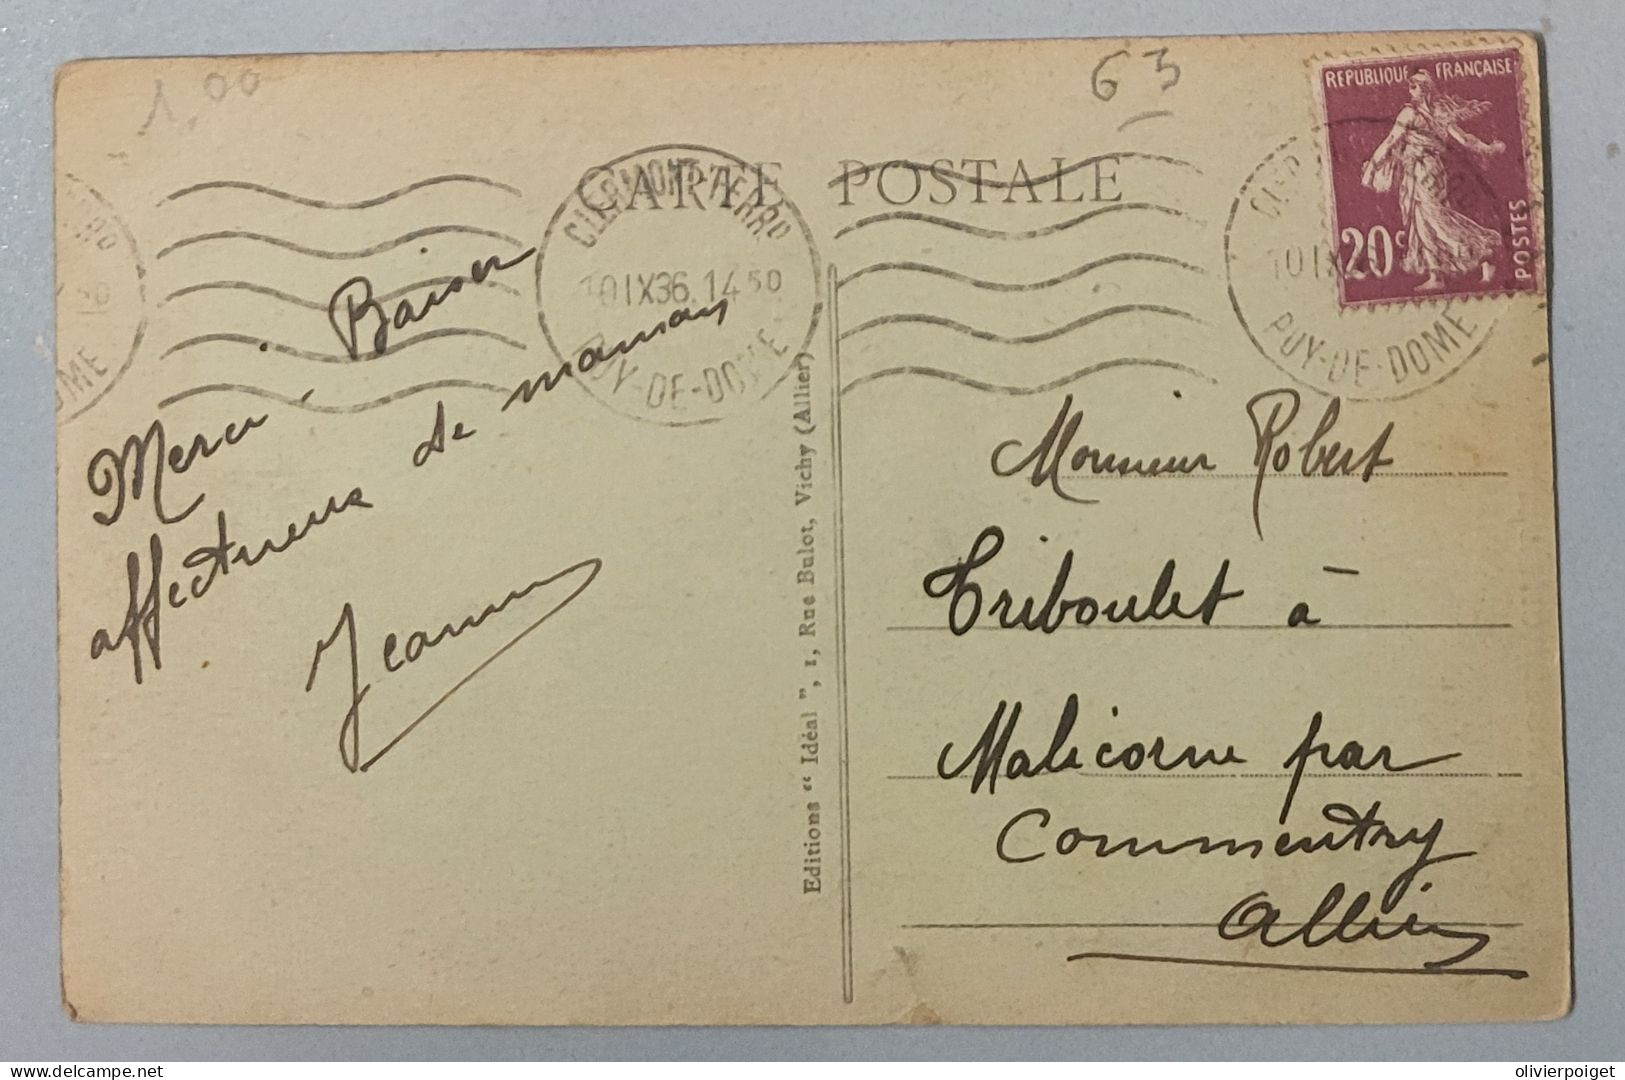 1,00
63
CARTE POSTALE
REPUBLIQUE FRANÇAISE
20c
POSTES
CLERMONT-FERRD
10 IX 36. 14 50
PUY-DE-DOME
PUY-DE-DOME
Merci. Baiser
affectueux de maman
Jeanne
Editions “ Idéal ”, 1, Rue Bulot, Vichy (Allier)
Monsieur Robert
Triboulet à
Malicorne par
Commentry
Allier
delcampe.net
olivierpoiget